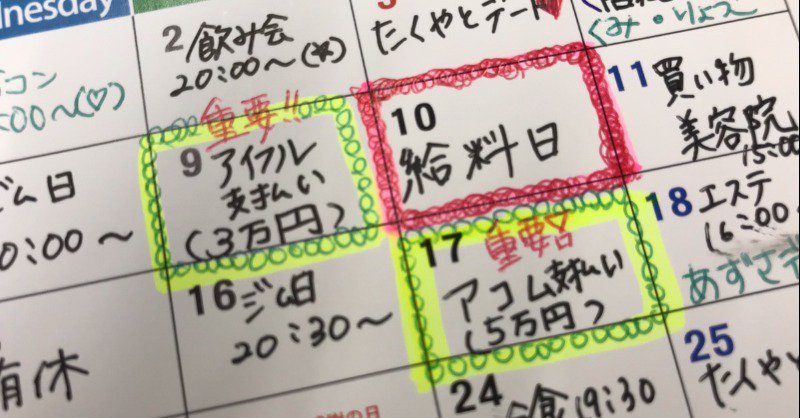 nesday
2 飲み会
20:00〜(★)
たくやとデート♥
くみ・りょこ
コン
:00〜(♡)
重要!!
9 アイフル
支払い
(3万円)
10
給料日
11 買い物
美容院
15:00
ジム日
0:00〜
16 ジム日
20:30〜
17 重要日
アコム支払い
(5万円)
18 エステ
16:00
あずさ
有休
24
食 19:30
25
たくやと
の日